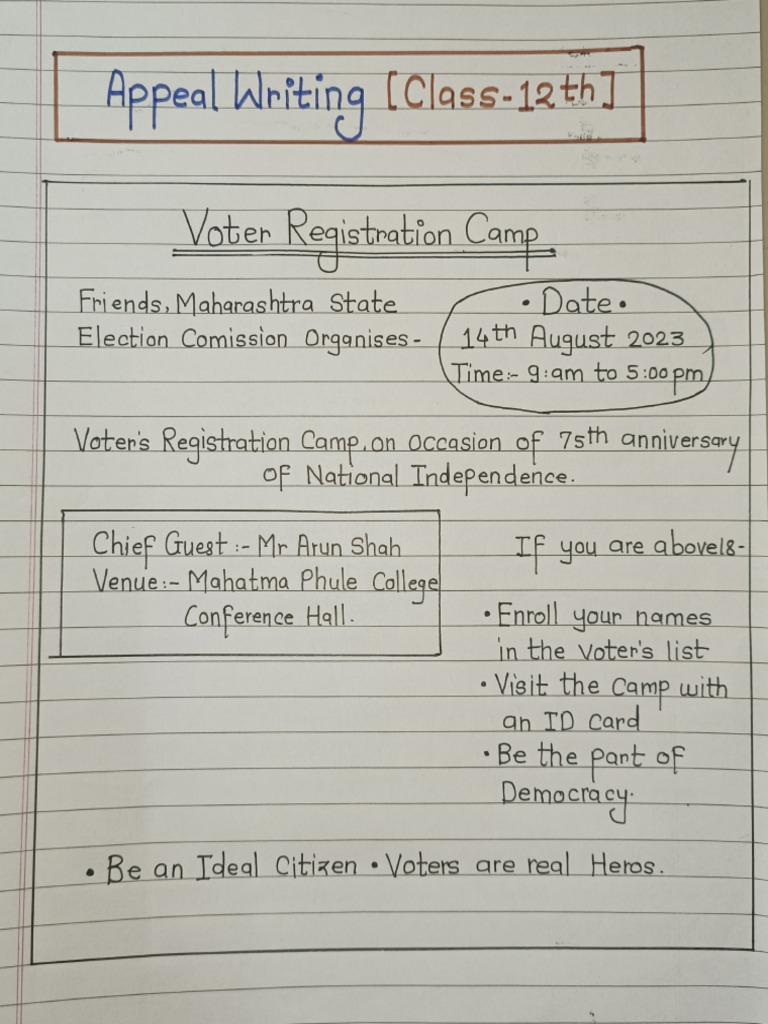 Appeal Writing [Class-12th]
Voter Registration Camp
Friends, Maharashtra State
Election Comission Organises-
• Date •
14th August 2023
Time:- 9:am to 5:00pm
Voter's Registration Camp, on occasion of 75th anniversary
of National Independence.
Chief Guest :- Mr Arun Shah
Venue:- Mahatma Phule College
Conference Hall.
If you are above18-
• Enroll your names
in the voter's list
• Visit the camp with
an ID card
• Be the part of
Democracy.
• Be an Ideal Citizen • Voters are real Heros.